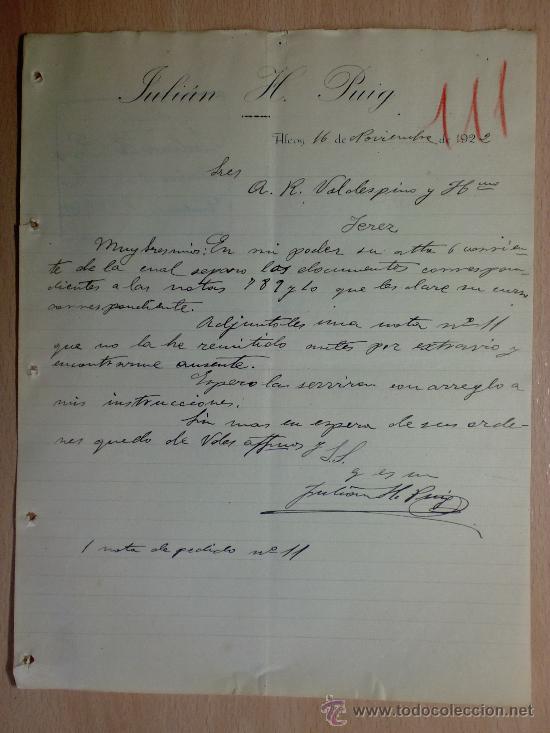 Julián H. Puig
111
Alcoy, 16 de Noviembre de 1922
Sres
A. R. Valdespino y Hno
Jerez
Muy Sres mios: En mi poder su atta 6 corrien-
te de la cual separo los documentos correspon-
dientes a las notas 7 8 9 y 10 que les dare su curso
correspondiente.
Adjuntoles una nota nº 11
que no la he remitido antes por extravio y
encontrarme ausente.
Espero las serviran con arreglo a
mis instrucciones.
Sin mas en espera de sus orde-
nes quedo de Vdes affmos y S.S.
q es m
Julián H. Puig
1 nota de pedido nº 11
todocoleccion
www.todocoleccion.net